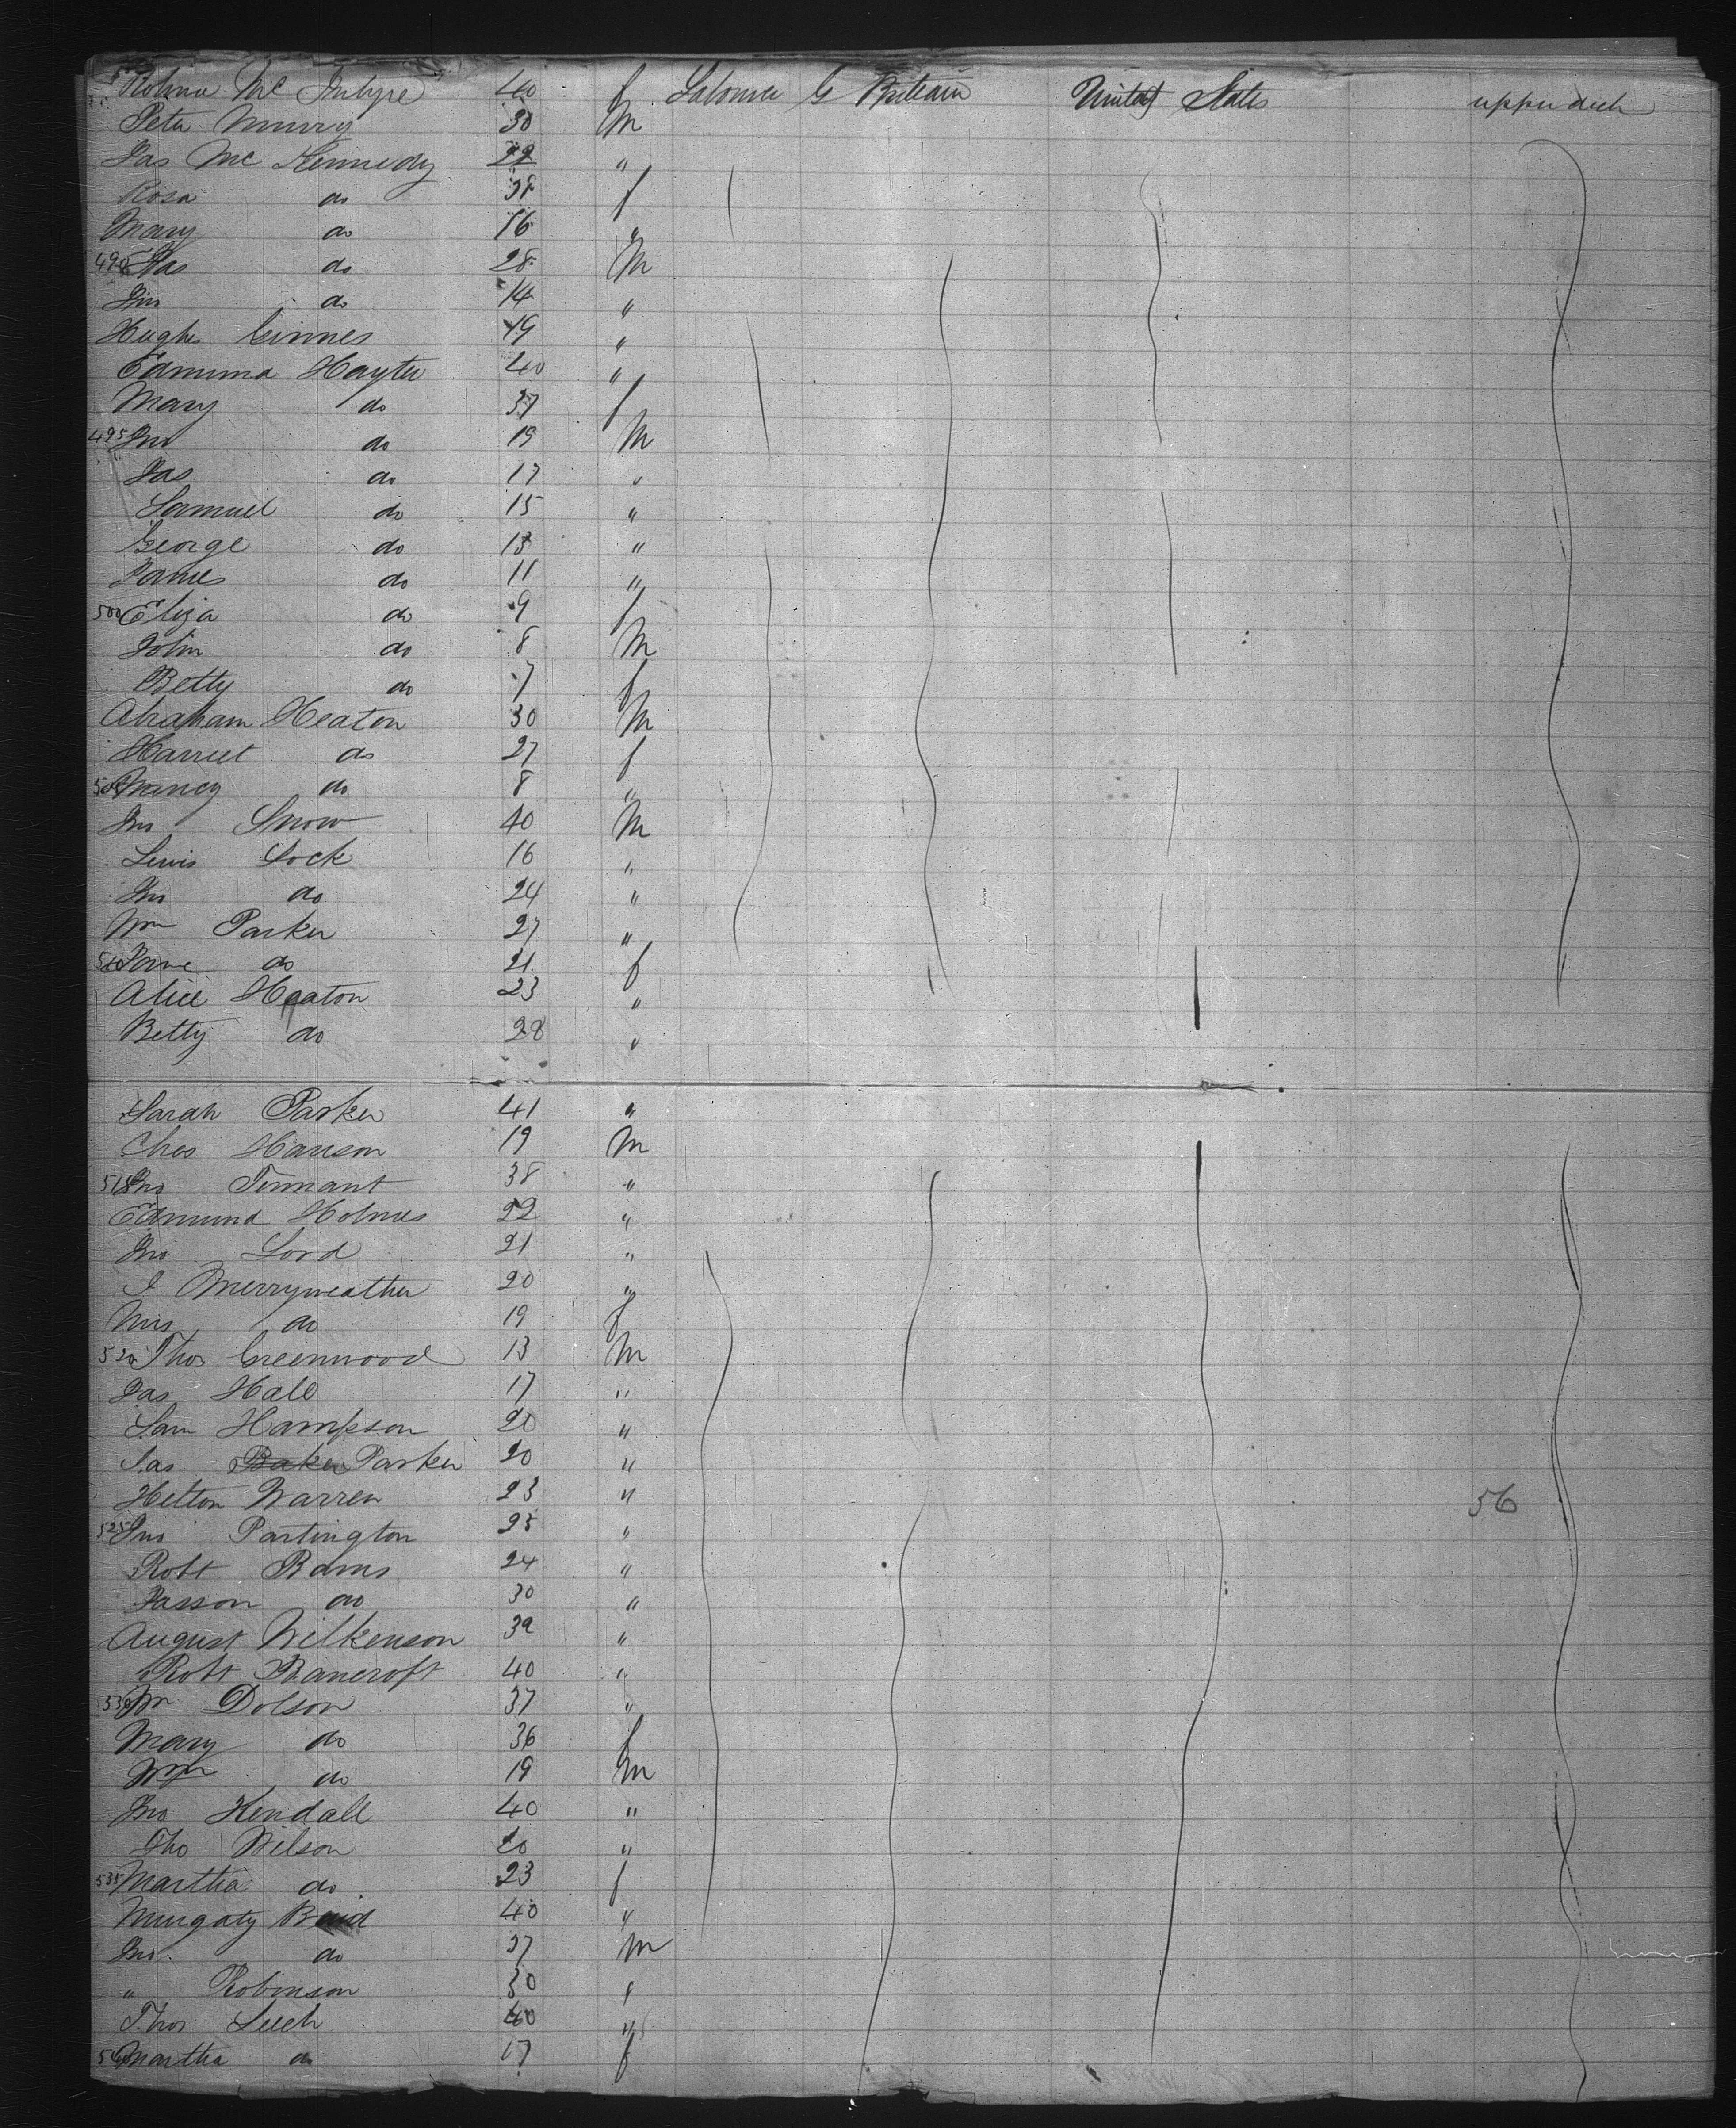 Mc Intyre 40 f Laborer G Britain United States upper deck
Peter Murry 30 M
Jas Mc Kennedy 22 "
Rosa do 38 f
Mary do 16 "
490 Jas do 28 M
Jno do 14 "
Hugh 19 "
Edmund Hayter 40 "
Mary do 37 f
495 Jno do 19 M
Jas do 17 "
Samuel do 15 "
George do 13 "
James do 11 "
500 Eliza do 9 f
John do 8 M
Betty do 7 f
Abraham Heaton 30 M
Harriet do 27 f
505 Nancy do 8 "
Jno Snow 40 M
Lewis Lock 16 "
Jno do 24 "
Wm Parker 27 "
510 Jane do 21 f
Alice Heaton 23 "
Betty do 28 "
Sarah Parker 41 "
Chas Hanson 19 M
515 Jno Tennant 38 "
Edmund Holmes 22 "
Jno Lord 21 "
J Merryweather 20 "
Mrs do 19 f
520 Thos Greenwood 13 M
Jas Hall 17 "
Sam Hampson 20 "
Jas Baker Parker 20 "
Helton Warren 23 " 56
525 Jno Partington 25 "
Robt Rams 24 "
Jasson do 30 "
August Wilkenson 32 "
Robt Bancroft 40 "
530 Wm Dolson 37 "
Mary do 36 f
Wm do 19 M
Jno Kendall 40 "
Tho Wilson 20 "
535 Martha do 23 f
Baid 40 "
Jno do 27 M
" Robinson 30 "
Thos Leech 40 "
540 Martha do 17 f